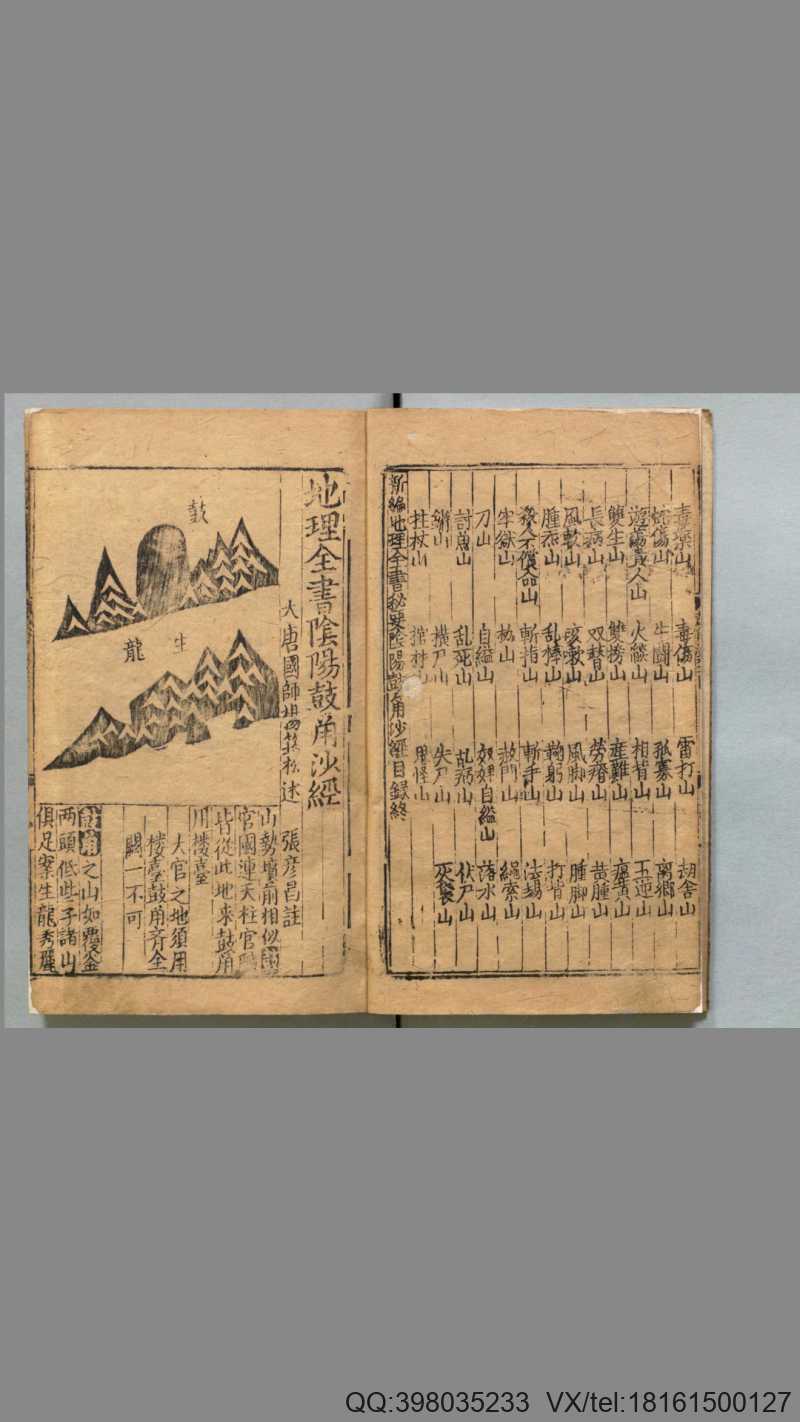 毒藥山 毒傷山 雷打山 刼舍山
傷山 牛鬪山 孤寡山 离鄉山
遊蕩人山 火燄山 相背山 山
雙生山 山 産難山 瘟黄山
長病山 双瞽山 勞瘵山 黄腫山
風軟山 咳嗽山 風脚山 腫脚山
腫山 乱棒山 鞠躬山 打背山
殺人不償命山 斬指山 斬手山 法場山
牢獄山 枷山 赦門山 繩索山
刀山 自縊山 奴婢自縊山 落水山
山 乱死山 乱病山 伏尸山
山 横尸山 失尸山 灰袋山
拄杖山 棺材山 鬼怪山
新編地理全書秘要陰陽鼓角沙經目録終
地理全書陰陽鼓角沙經
大唐國師楊筠松述 張彦昌註
鼓
生
龍
山勢壇前相似國
官國連天柱官
皆從此地来鼓角
川楼臺
大官之地須用
楼臺鼓角齐全
闕一不可
鼓角之山如覆釜
两頭低些子諸山
俱足案生龍秀麗
QQ:398035233 VX/tel:18161500127